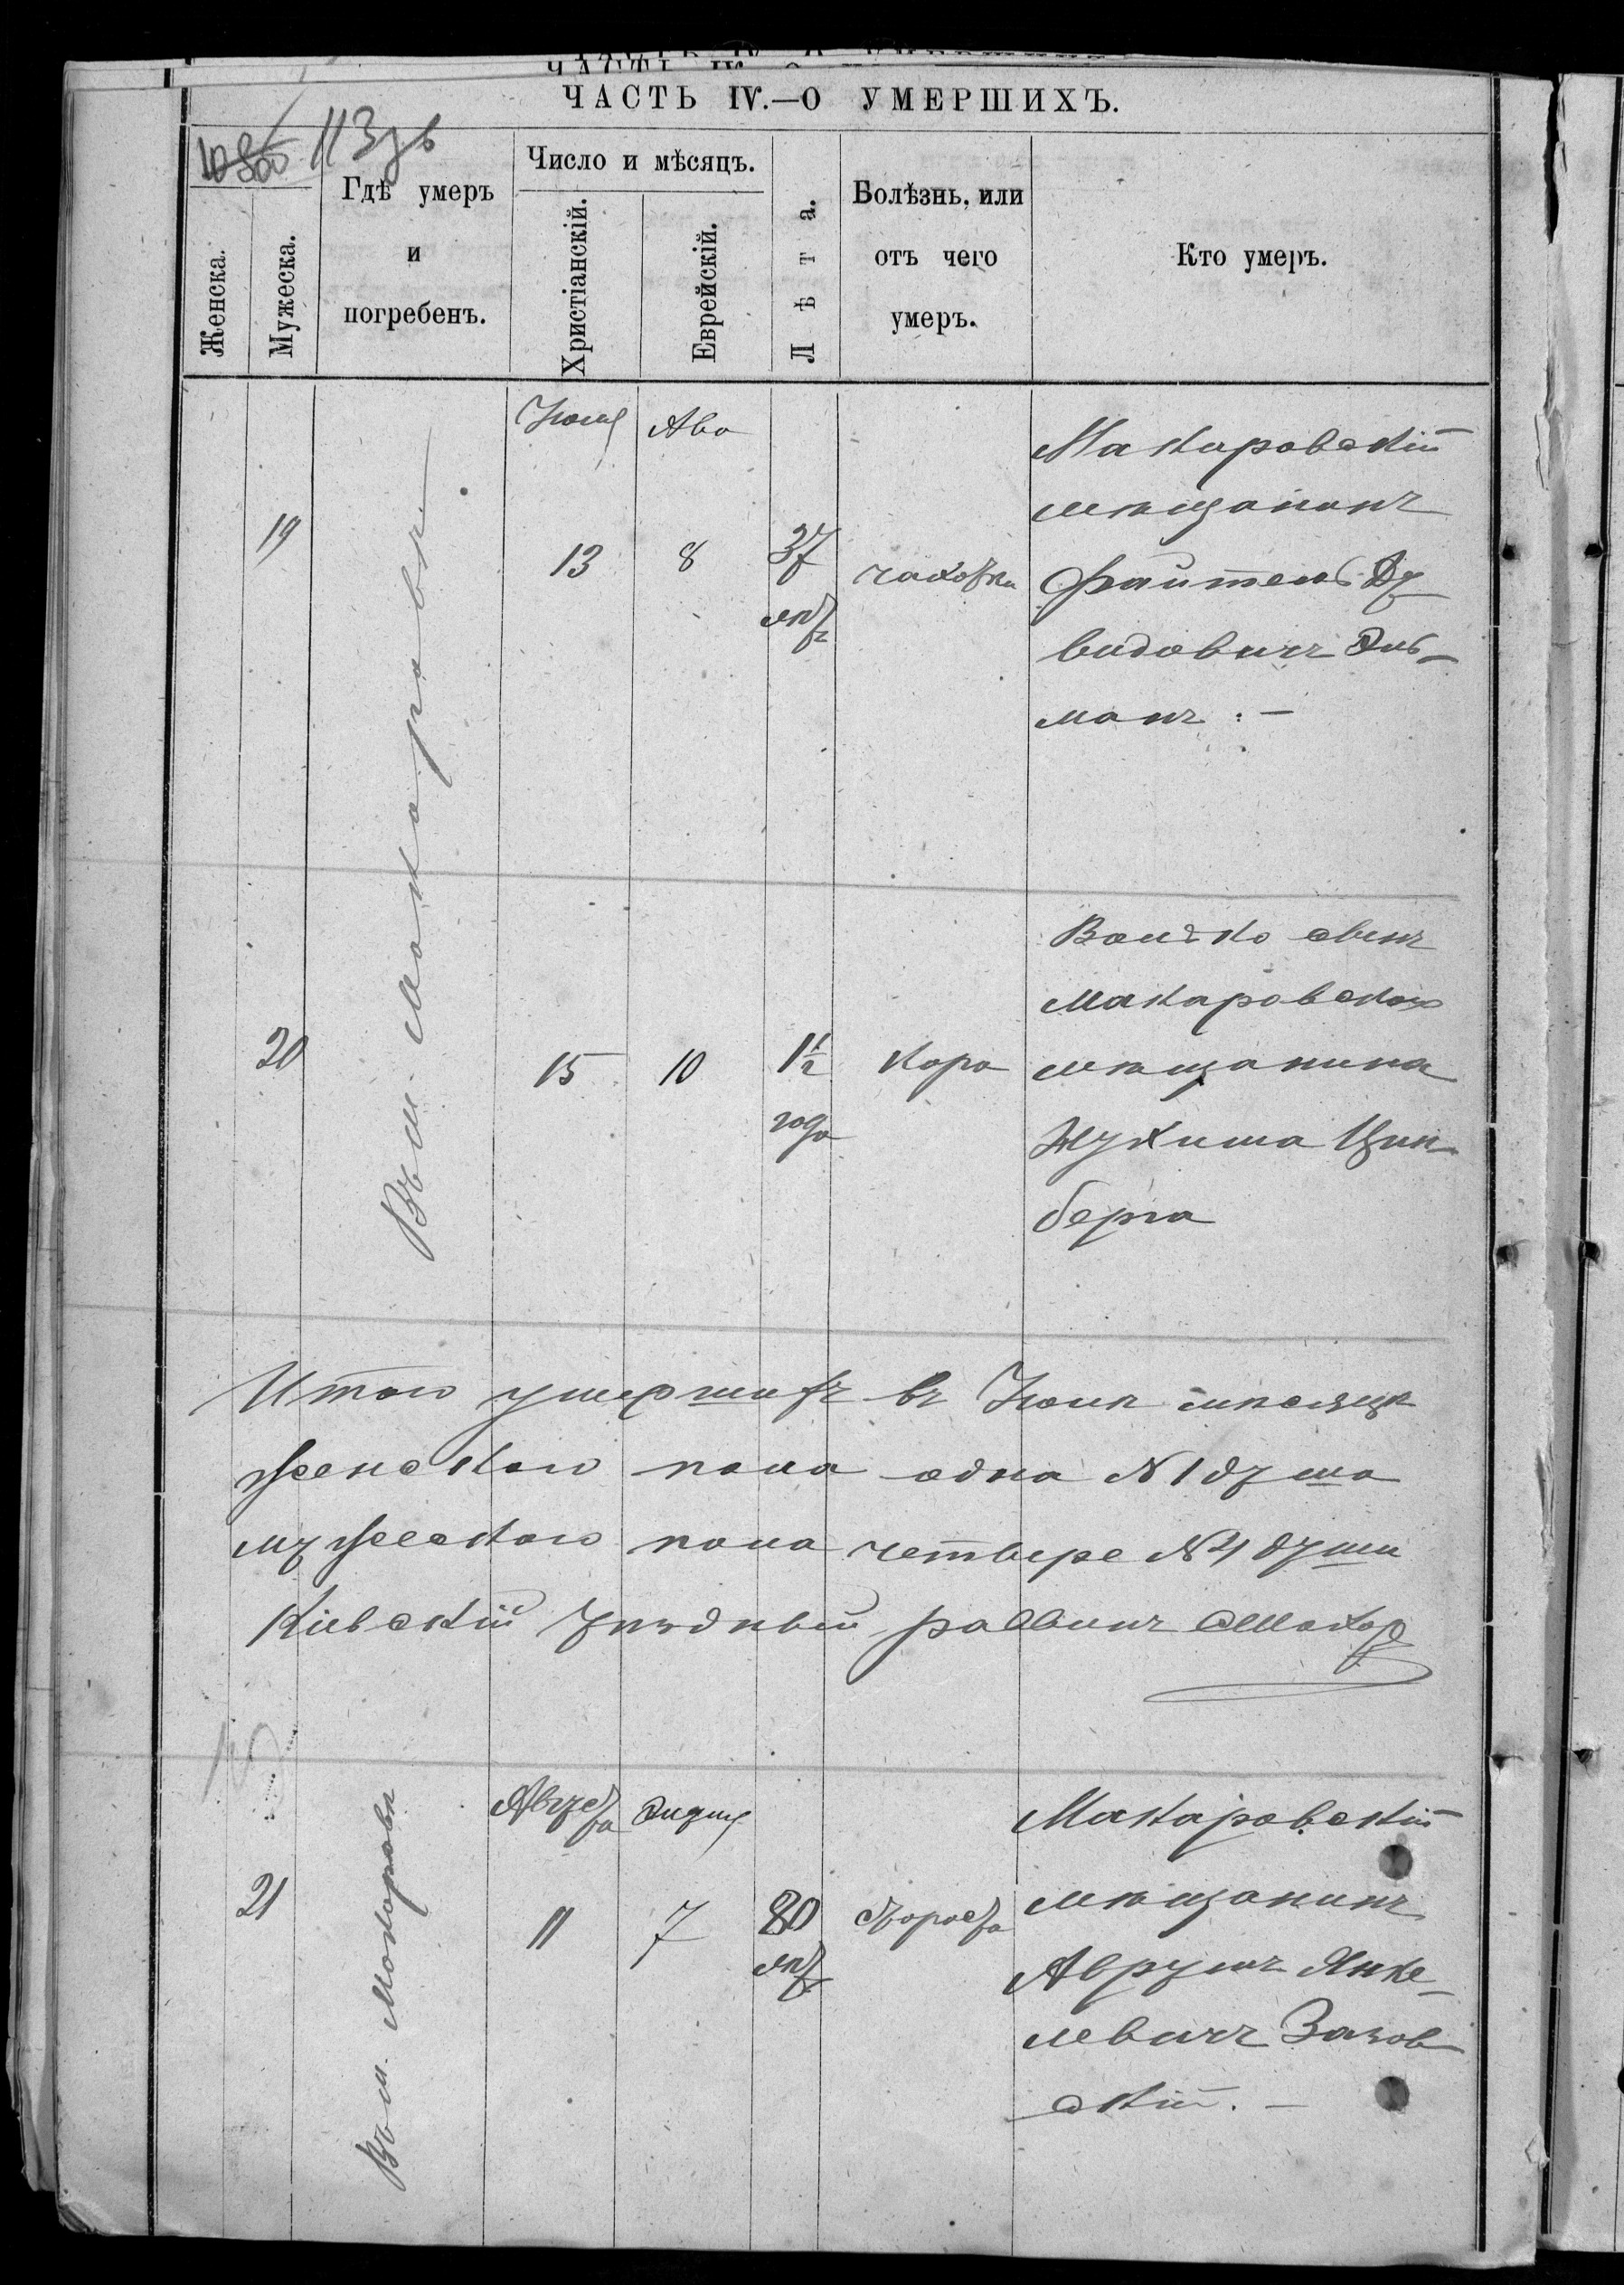 ЧАСТЬ IV.—О УМЕРШИХЪ.
113
Женска.
Мужеска.
Гдѣ умеръ
и
погребенъ.
Число и мѣсяцъ.
Христіанскій.
Еврейскій.
Лѣта.
Болѣзнь, или
отъ чего
умеръ.
Кто умеръ.
Въ м. Макаровѣ
Іюля
Ава
19
13
8
37
лѣтъ
чахотка
Макаровскій
мѣщанинъ
Файтель Да
видовичъ Эль-
манъ. —
20
15
10
1½
года
Корь
Волько сынъ
Макаровскаго
мѣщанина
Мужиша Цин-
берга
Итого умершихъ въ Іюлѣ мѣсяцѣ
женскаго пола одна № 1 душа
мужескаго пола четвере № 4 души
Кіевскій Уѣздный раввинъ
Въ м. Макаровѣ
Августа
Элуля
21
11
7
80
лѣтъ
старость
Макаровскій
мѣщанинъ
Аврумъ Янке-
левичъ Зазов
скій. —